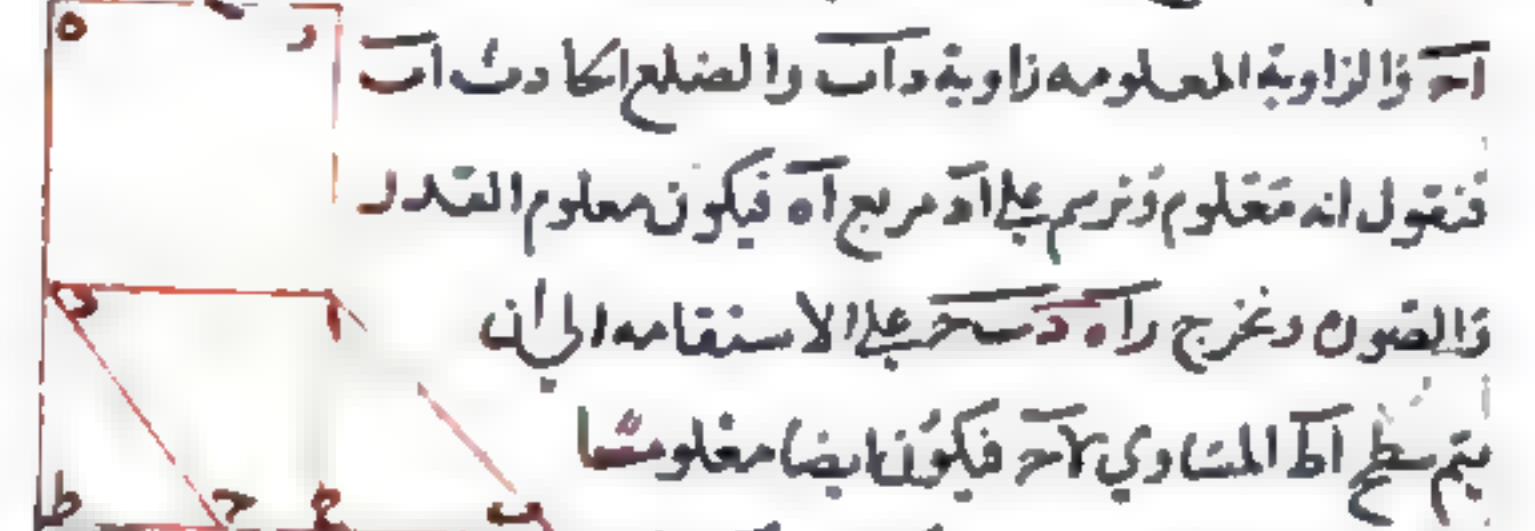 اح والزاوية المعلومه زاوية داب والضلع الحادث اب
فنقول انه معلوم ونرسم على اد مربع اه فيكون معلوم القدر
والصوره ونخرج راه د ب ح على الاستقامه الى ان
يتم سطح اط المساوي لاح فيكون ايضا معلوما
ه ر
د ا
ط ح ب